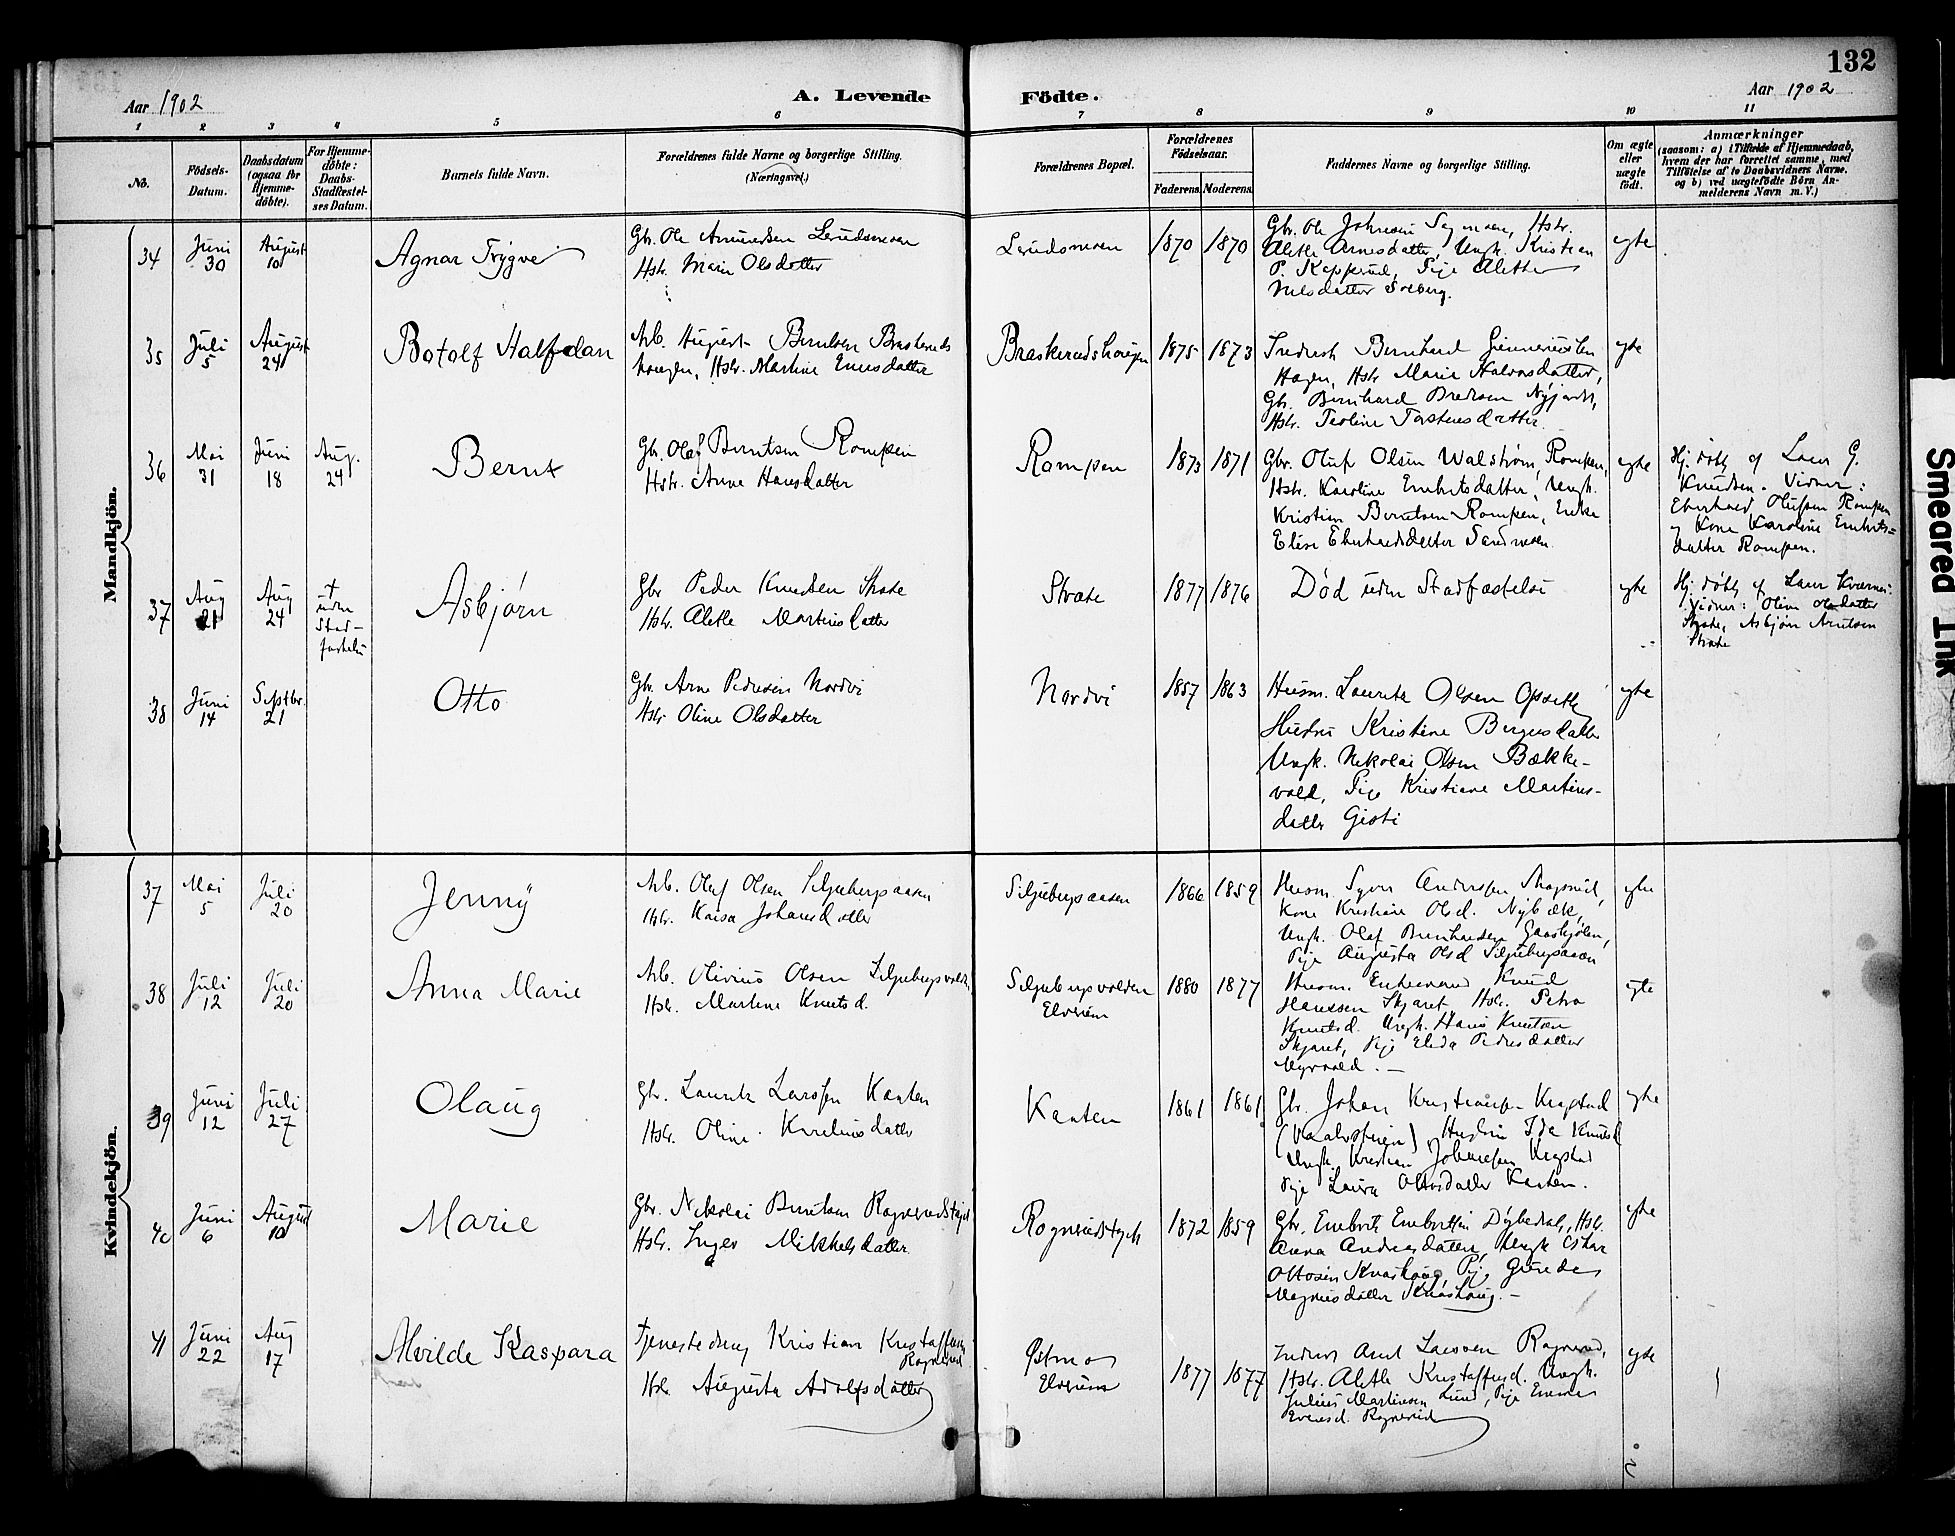 132
Aar 1902
A. Levende Födte.
Aar 1902
1 2 3 4 5 6 7 8 9 10 11
No.
Födsels-Datum.
Daabsdatum (ogsaa for Hjemmedöbte).
For Hjemmedöbte: Daabs-Stadfæstelses Datum.
Barnets fulde Navn.
Forældrenes fulde Navne og borgerlige Stilling. (Næringsvei.)
Forældrenes Bopæl.
Forældrenes Födselsaar.
Faderens. Moderens.
Faddernes Navne og borgerlige Stilling.
Om ægte eller uægte födt.
Anmærkninger
(saasom: a) i Tilfælde af Hjemmedaab, hvem der har forrettet samme, med Tilföielse af to Daabsvidners Navne. og b) ved uægtefödte Börn Anmelderens Navn m. V.)
Mandkjön.
34 Juni 30 August 10 Agnar Trygve
Gbr. Ole Amundsen
Hstr. Marie Olsdatter
1870 1870
Gbr. Ole Johnsen
Alette Arnesdatter, Ungk. Kristian
P. Pige Alette
Nilsdatter Solberg.
egte
35 Juli 5 August 24 Botolf Halfdan
Arb. August Berntsen Braskeruds
haugen, Hstr. Martine
Braskerudshaugen
1875 1873
Fredrik Bernhard
Hagen, Hstr Marie Halvorsdatter,
Gbr. Bernhard
Hstr. Teoline Torstensdatter
egte
36 Mai 31 Juni 18 Aug. 24 Bernt
Gbr. Olaf Berntsen Rompen
Hstr. Anne Hansdatter
Rompen
1873 1871
Gbr. Oluf Olsen Walstrøm, Rompen,
Hstr. Karoline Embretsdatter, Ungk.
Kristian Berntsen Rompen, Enke
Elise Eberhardsdatter
egte
Hj. døbt af Laur G.
Knudsen. Vidner:
Eberhard Olufsen Rompen
og Kone Karoline Embrets-
datter Rompen.
37 Aug 21 Aug 24
†
uden
Stad-
fæstelse
Asbjørn
Gbr Peder Knudsen Strate
Hstr. Alette Martinsdatter
Strate
1877 1876
Død uden Stadfæstelse
egte
Hj. døbt af Laur
Vidner: Oline Olsdatter
Strate, Asbjørn Arntsen
Strate
38 Juni 14 Septbr. 21 Otto
Gbr. Arne Pedersen Nordvi
Hstr. Oline Olsdatter
Nordvi
1857 1863
Husm. Lauritz Olsen Opseth
Hustru Kristine Birgersdatter
Ungk. Nikolai Olsen Bække-
vold, Pige Kristiane Martins-
datter Gisti
egte
Kvindekjön.
37 Mai 5 Juli 20 Jenny
Arb. Oluf Olsen Siljubergsaasen
Hstr. Kaisa Johansdatter
Siljubergsaasen
1866 1859
Husm. Syver Andersen
Kone Kristiane Olsd. Nybæk,
Ungk. Olaf Bernhardsen
Pige Augusta Olsd Siljubergsaasen
egte
38 Juli 12 Juli 20 Anna Marie
Arb. Olivius Olsen Siljubergsvolden
Hstr. Martine Knutsd.
Siljubergsvolden
Elverum
1880 1877
Husm. Enkemand Knud
Hanssen Skjæret, Hstr. Petra
Knutsd. Ungk. Hans Knutsen
Skjæret, Pige Elida Pedersdatter
Myrvold. –
egte
39 Juni 12 Juli 27 Olaug
Gbr. Lauritz Larssen Kanten
Hstr. Oline Kareliusdatter
Kanten
1861 1861
Gbr. Johan Kristiansen Kragstad
Hustru Ida Knutsd
Ungk. Kristian Johansen Kragstad
Pige Laura Kanten.
egte
40 Juni 6 August 10 Marie
Gbr. Nikolai Berntsen
Hstr. Inger Mikkelsdatter
1872 1859
Gbr. Embret Embretsen Dybedal, Hstr.
Anna Andreasdatter, Ungk Oskar
Ottosen Knashaug, Pige
Magnusdatter Knashaug. –
egte
41 Juni 22 Aug 17 Alvilde Kaspara
Tjenestedreng Kristian Kristoffersen
Rogneruds
Hstr. Augusta Adolfsdatter
Østmo
Elverum
1877 1877
Larssen Rognerud,
Hstr. Alette Kristoffersd. Ungk.
Julius Martinsen Lund, Pige Emma
Evensd. Rognerud
egte
Smeared Ink